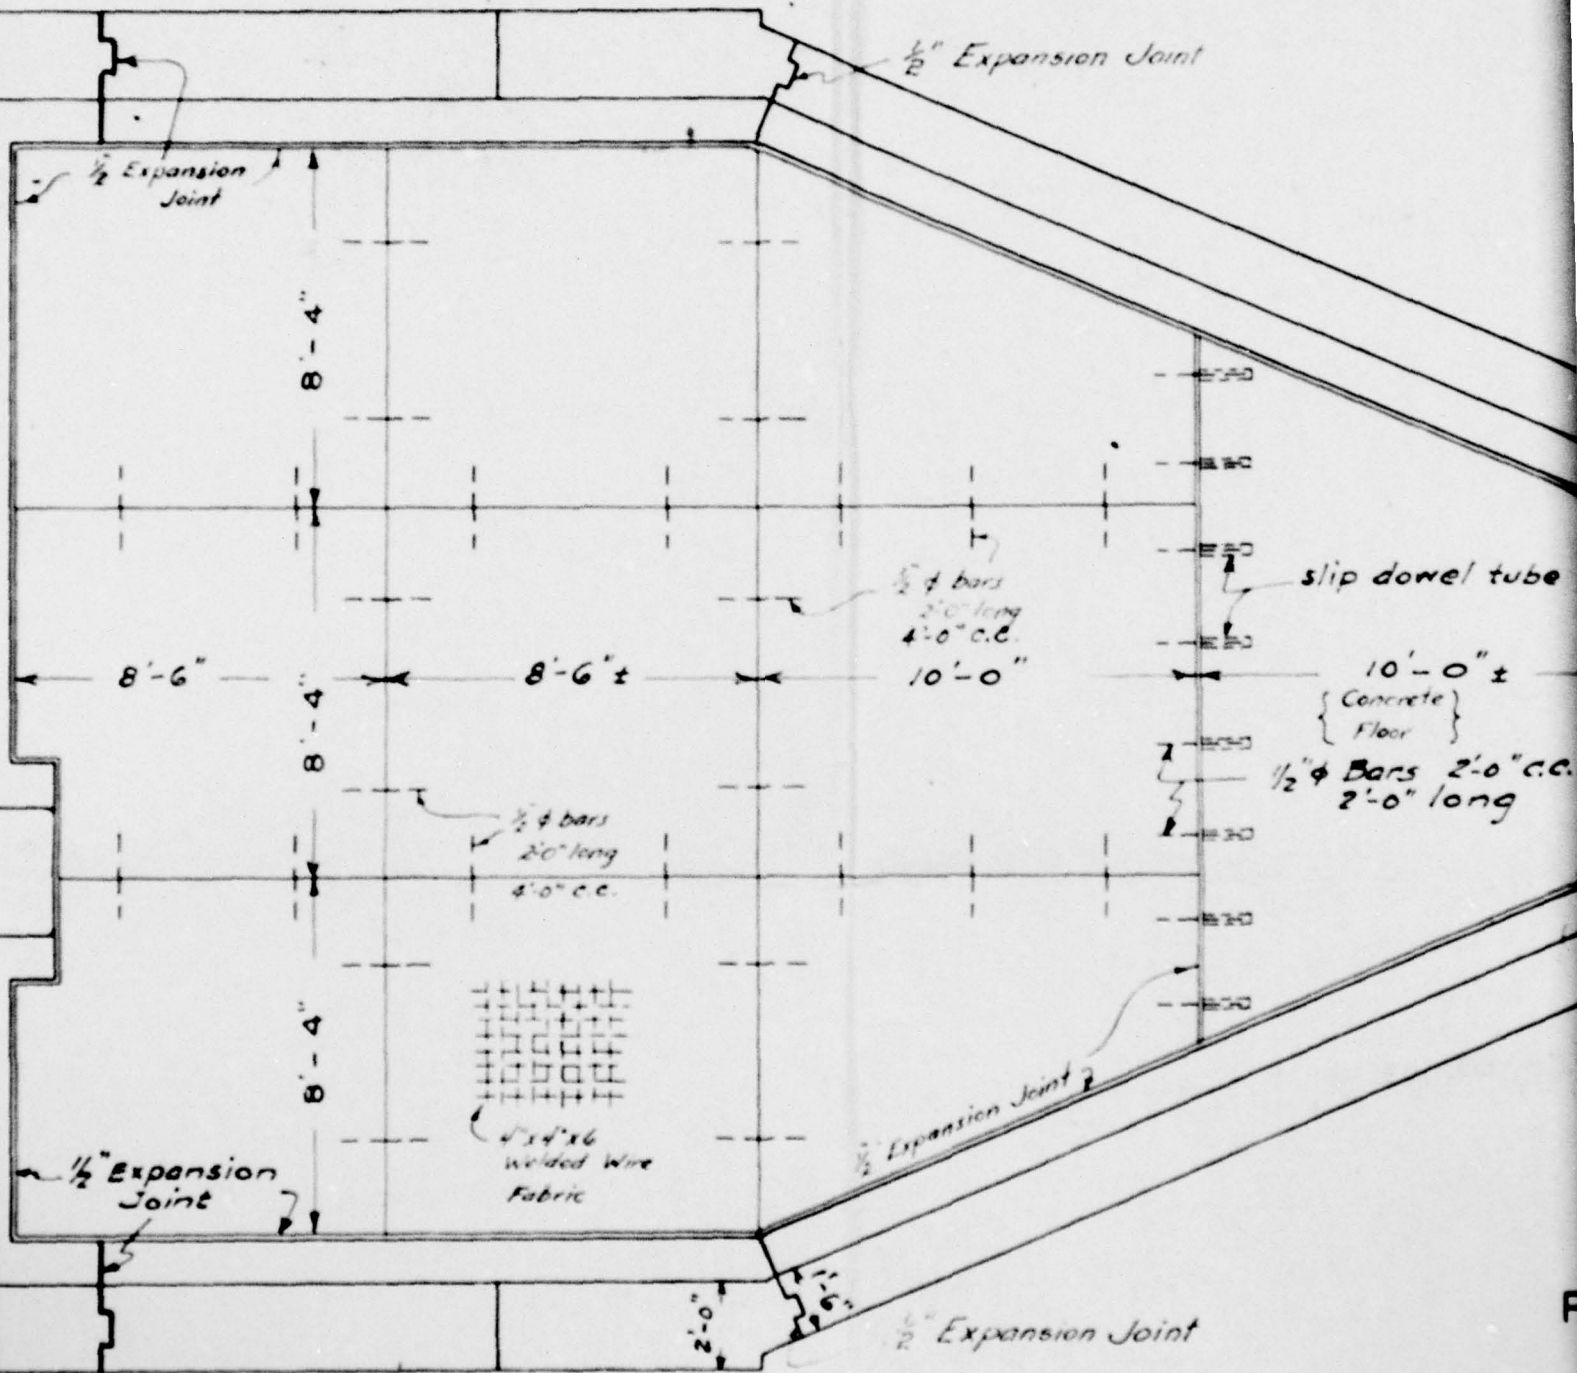 1/2" Expansion Joint
1/2 Expansion
Joint
8'-4"
1/2 ϕ bars
2'-0" long
4'-0" c.c.
slip dowel tube
8'-6"
8'-6" ±
10'-0"
10'-0" ±
{ Concrete }
{ Floor }
1/2" ϕ Bars 2'-0" c.c.
2'-0" long
8'-4"
1/2 ϕ bars
2'-0" long
4'-0" c.c.
8'-4"
4" x 4" x 6
Welded Wire
Fabric
1/2" Expansion Joint
1/2" Expansion
Joint
2'-0"
1'-6"
1/2" Expansion Joint